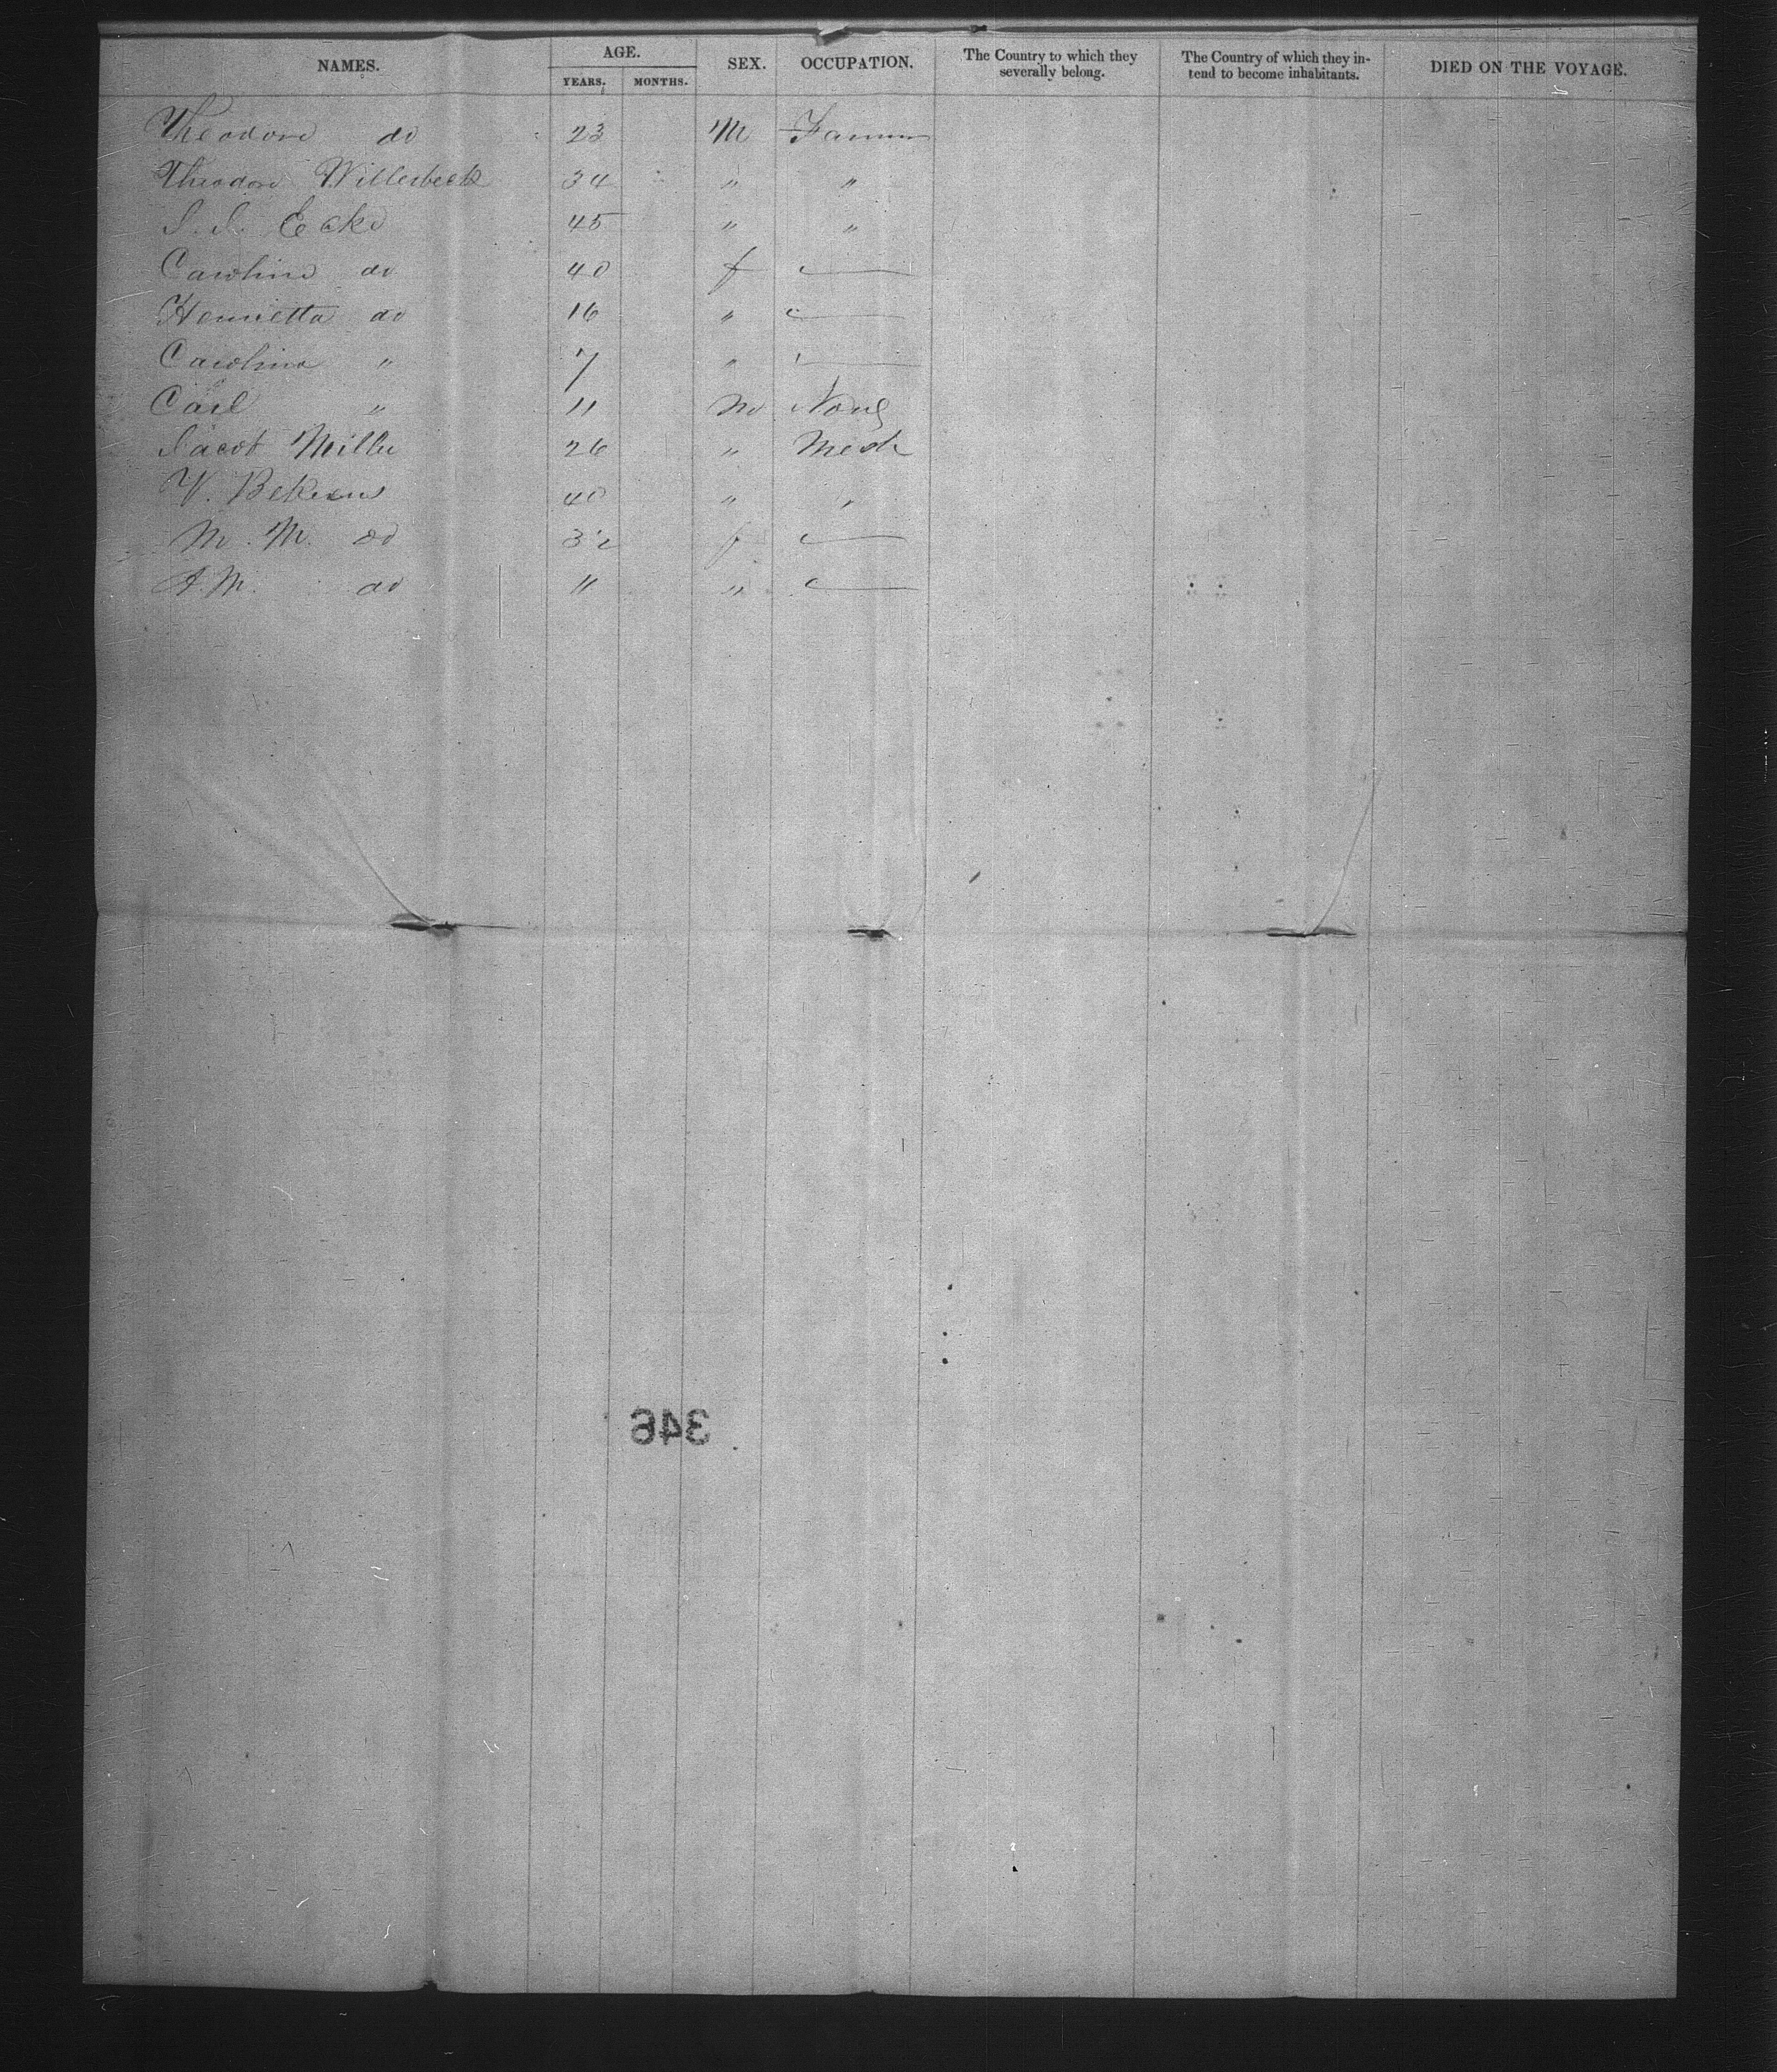 NAMES. AGE. SEX. OCCUPATION. The Country to which they severally belong. The Country of which they in- tend to become inhabitants. DIED ON THE VOYAGE.
YEARS. MONTHS.
Theodore do 23 M Farmer
Theodore Willerbeck 34 " " "
J. J. Ecke 45 " "
Caroline do 40 f
Henrietta do 16 "
Caroline " 7 "
Carl " 11 m None
Jacob Miller 26 " Mech
V. 40 " "
M. M. do 32 f
A. M. do 11 "
346